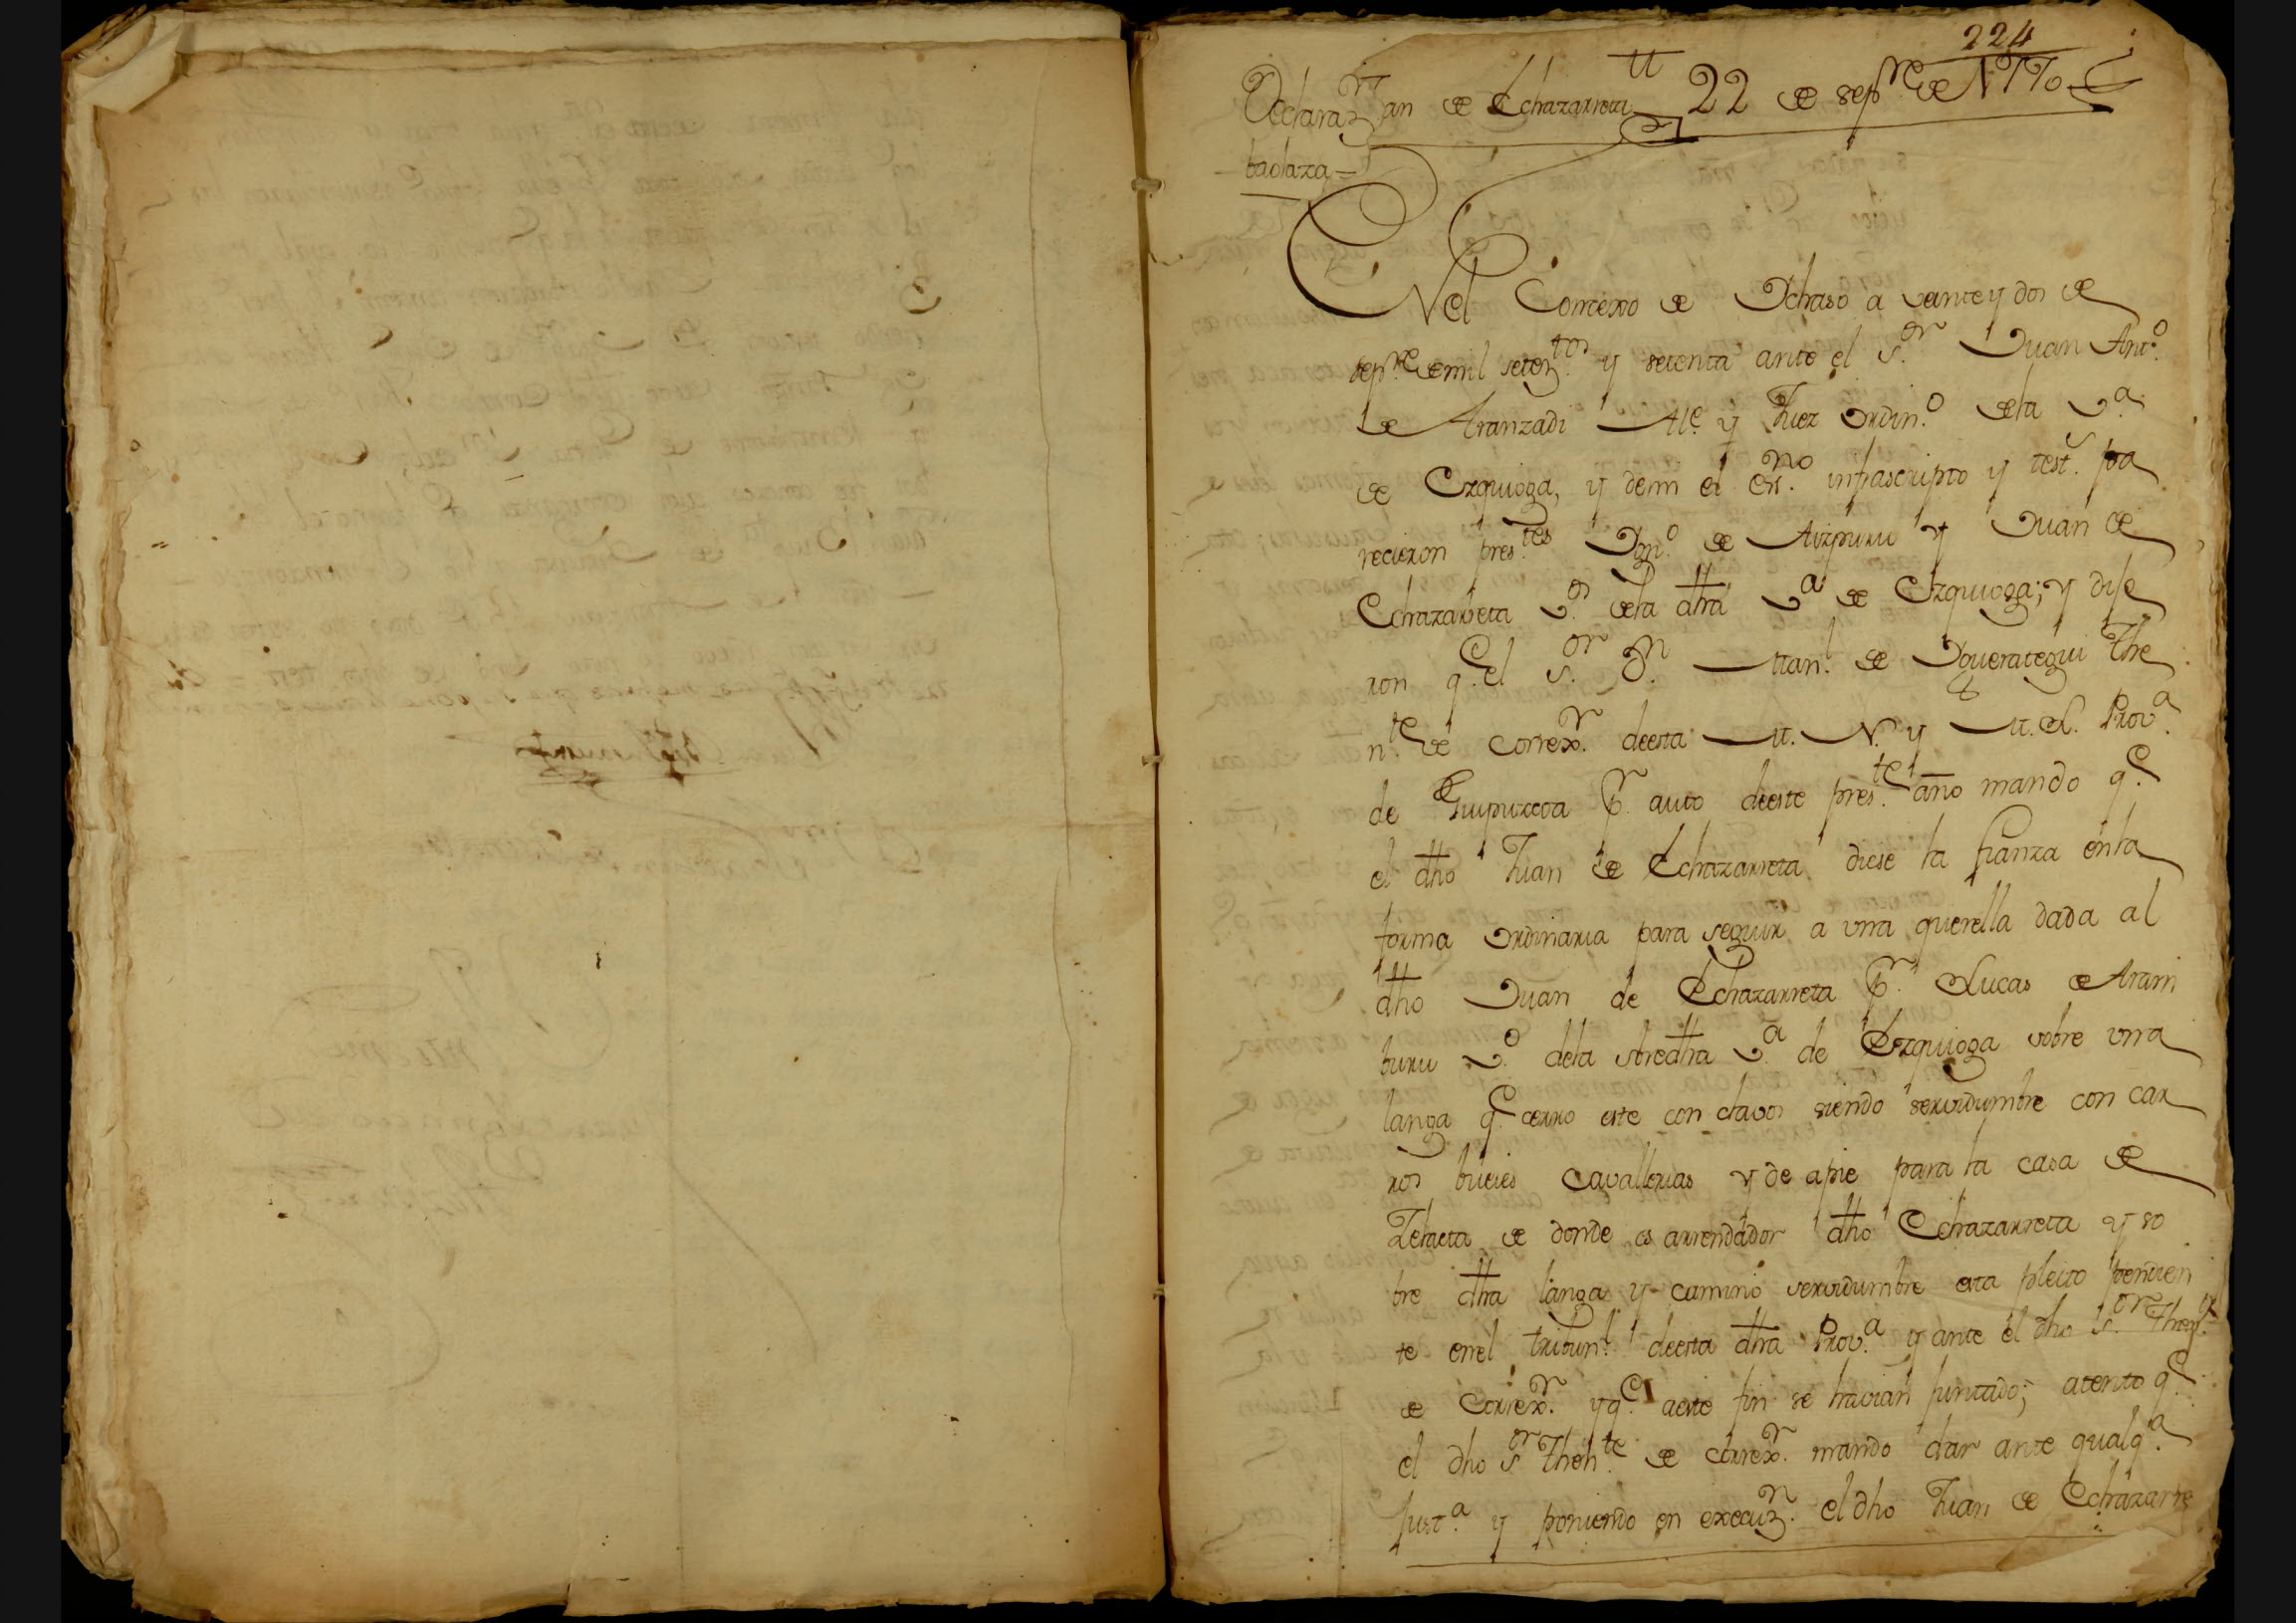 224
Declaraz.n Jn de Echazarreta 22 de sepre de 1770
badaza =
En el Conzexo de Ychaso a veinte y dos de
sepre de mil setez.tos y setenta ante el s.or Juan Ant.o
de Aranzadi Alc.e y Juez ordin.o de la v.a
de Ezquioga, y demi el es.no infrascripto y test.s pa
recieron pres.tes Dgn.o de Aizpuru y Juan de
Echazarreta v.os de la dha v.a de Ezquioga; y dije
ron q.e el s.or D.n Man.l de Yguerategui The
n.te de correx.r deesta M. N. y M. L. Prov.a
de Guipuzcoa p.r auto deeste pres.te año mando q.e
el dho Juan de Echazarreta diese la fianza enla
forma ordinaria para seguir a vna querella dada al
dho Juan de Echazarreta p.r Lucas de Aram
buru v.o dela sobredha v.a de Ezquioga sobre vna
langa q.e cerro este con clavos siendo servidumbre con car
ros bueies cavallerias y de apie para la casa de
Zelaeta de donde es arrendador dho Echazarreta y so
bre dha langa y camino servidumbre esta pleito pendien
te enel tribun.l deesta dha Prov.a y ante el dho s.or Then.te
de Correx.r y q.e aeste fin se havian juntado; atento q.e
el dho s.or Then.te de correx.r mando dar ante qualq.a
Just.a y poniendo en execuz.n el dho Juan de Echazarre